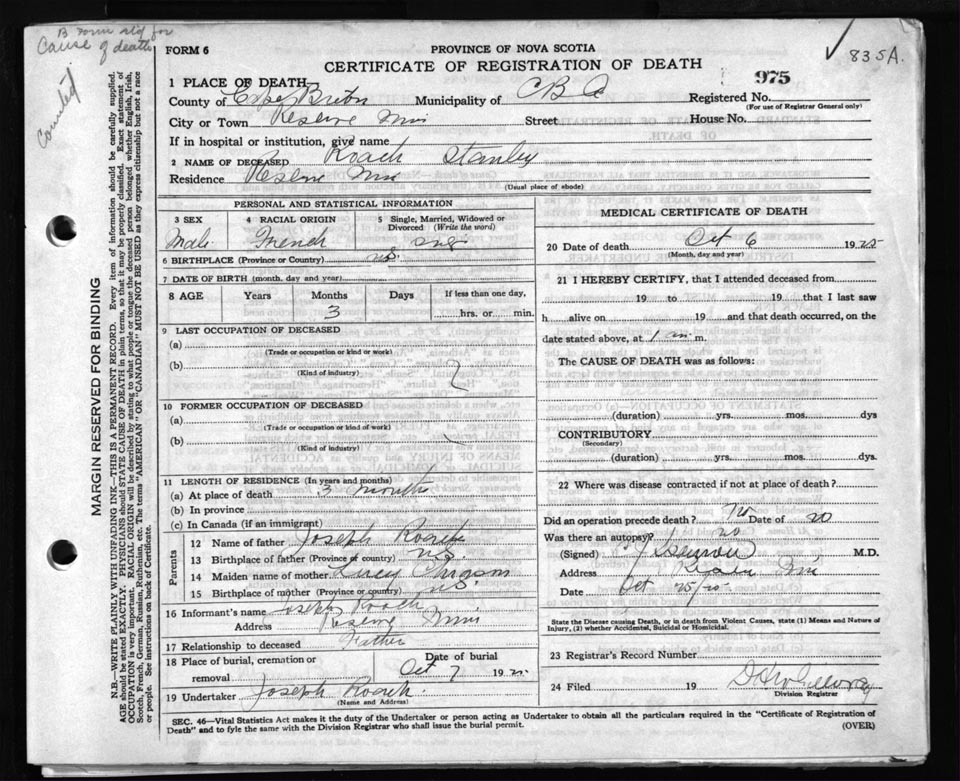 B Form str'd for
Cause of death
Counted
835A.
FORM 6
PROVINCE OF NOVA SCOTIA
CERTIFICATE OF REGISTRATION OF DEATH
975
1 PLACE OF DEATH
County of Cape Breton Municipality of C B Registered No.
(For use of Registrar General only)
City or Town Reserve Street House No.
If in hospital or institution, give name
2 NAME OF DECEASED Roach Stanley
Residence Reserve
(Usual place of abode)
PERSONAL AND STATISTICAL INFORMATION
3 SEX 4 RACIAL ORIGIN 5 Single, Married, Widowed or Divorced (Write the word)
Male French sng
6 BIRTHPLACE (Province or Country) n.s.
7 DATE OF BIRTH (month, day and year)
8 AGE Years Months Days If less than one day,
3 hrs. or min.
9 LAST OCCUPATION OF DECEASED
(a)
(Trade or occupation or kind or work)
(b)
(Kind of industry)
10 FORMER OCCUPATION OF DECEASED
(a)
(Trade or occupation or kind or work)
(b)
(Kind of industry)
11 LENGTH OF RESIDENCE (In years and months)
(a) At place of death 3 months
(b) In province
(c) In Canada (if an immigrant)
Parents
12 Name of father Joseph Roach
13 Birthplace of father (Province or country) N.S.
14 Maiden name of mother Lucy
15 Birthplace of mother (Province or country) N.S.
16 Informant's name Joseph Roach
Address Reserve
17 Relationship to deceased Father
18 Place of burial, cremation or removal Date of burial
Oct 7 19
19 Undertaker Joseph Roach.
(Name and Address)
MEDICAL CERTIFICATE OF DEATH
20 Date of death Oct 6 19
(Month, day and year)
21 I HEREBY CERTIFY, that I attended deceased from
19 to 19 that I last saw
h alive on 19 and that death occurred, on the
date stated above, at 1 m.
The CAUSE OF DEATH was as follows:
(duration) yrs. mos. dys
CONTRIBUTORY
(Secondary)
(duration) yrs. mos. dys.
22 Where was disease contracted if not at place of death?
Did an operation precede death? No Date of no
Was there an autopsy? no
(Signed) M.D.
Address
Date Oct 25/25
State the Disease causing Death, or in death from Violent Causes, state (1) Means and Nature of
Injury, (2) whether Accidental, Suicidal or Homicidal.
23 Registrar's Record Number
24 Filed 19
Division Registrar
SEC. 46—Vital Statistics Act makes it the duty of the Undertaker or person acting as Undertaker to obtain all the particulars required in the "Certificate of Registration of
Death" and to fyle the same with the Division Registrar who shall issue the burial permit. (OVER)
MARGIN RESERVED FOR BINDING
N.B.—WRITE PLAINLY WITH UNFADING INK—THIS IS A PERMANENT RECORD. Every item of information should be carefully supplied.
AGE should be stated EXACTLY. PHYSICIANS should STATE CAUSE OF DEATH in plain terms, so that it may be properly classified. Exact statement of
OCCUPATION is very important. RACIAL ORIGIN will be described by stating to what people or tongue the deceased person belonged whether English, Irish,
Scotch, French, German, Russian, Ruthenian, etc. The terms "AMERICAN" OR "CANADIAN" MUST NOT BE USED as they express citizenship but not a race
or people. See instructions on back of Certificate.